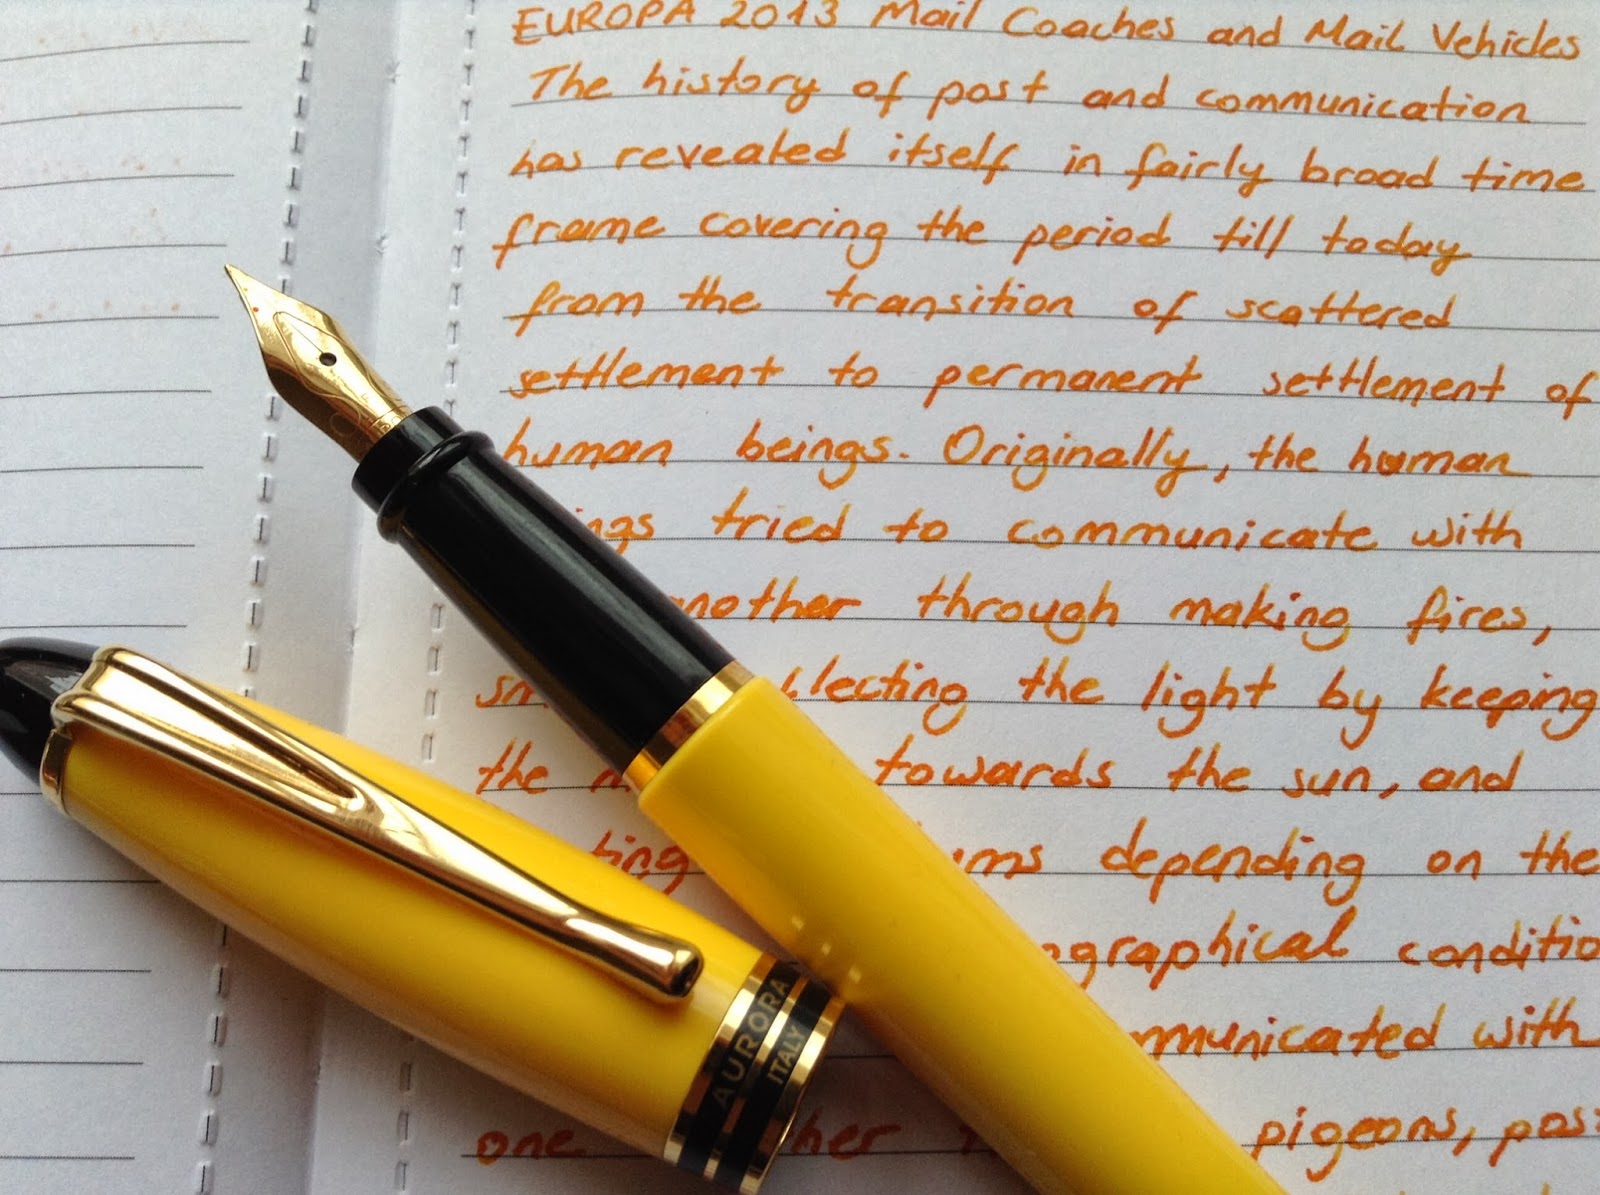 EUROPA 2013 Mail Coaches and Mail Vehicles
The history of post and communication
has revealed itself in fairly broad time
frame covering the period till today
from the transition of scattered
settlement to permanent settlement of
human beings. Originally, the human
tried to communicate with
another through making fires,
the light by keeping
the towards the sun, and
depending on the
communicated with
one pigeons,
AURORA
ITALY